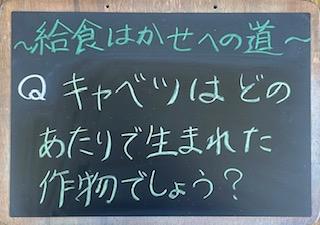 ～給食はかせへの道～
Q キャベツはどの
あたりで生まれた
作物でしょう？